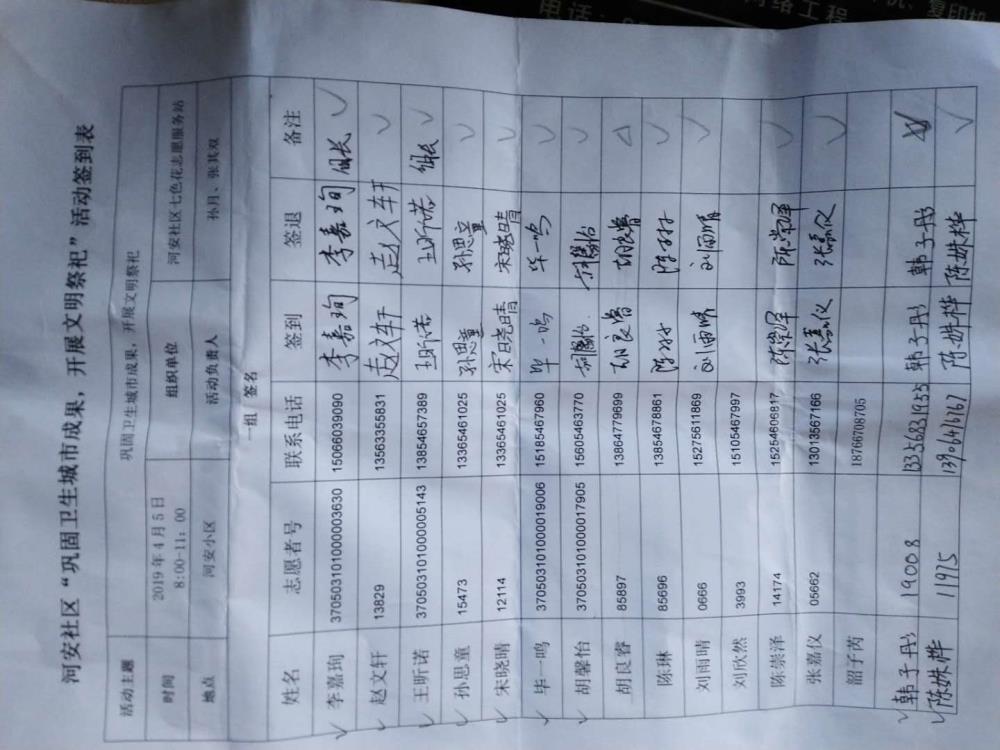 河安社区“巩固卫生城市成果，开展文明祭祀”活动签到表
活动主题 巩固卫生城市成果，开展文明祭祀
时间 2019年4月5日 8:00-11：00 组织单位 河安社区七色花志愿服务站
地点 河安小区 活动负责人 孙月、张其双
一组 签名
姓名 志愿者号 联系电话 签到 签退 备注
√ 李嘉珣 370503101000003630 15066039090 李嘉珣 李嘉珣 组长 √
√ 赵文轩 13829 13563355831 赵文轩 赵文轩 √
√ 王昕诺 370503101000005143 13854657389 王昕诺 王昕诺 组长 √
√ 孙思童 15473 13365461025 孙思童 孙思童 √
√ 宋晓晴 12114 13365461025 宋晓晴 宋晓晴 √
√ 毕一鸣 370503101000019006 15185467960 毕一鸣 毕一鸣 √
√ 胡馨怡 370503101000017905 15605463770 胡馨怡 胡馨怡 √
胡良睿 85897 13864779699 胡良睿 胡良睿 △
陈琳 85696 13854678861 陈琳 陈琳 √
刘雨晴 0666 15275611869 刘雨晴 刘雨晴 √
刘欣然 3993 15105467997
陈崇泽 14174 15254606817 陈崇泽 陈崇泽 √
张嘉仪 05662 13013567166 张嘉仪 张嘉仪 √
韶子芮 18766708705
√ 韩子彤 19008 13356831955 韩子彤 韩子彤
√ 陈姝桦 11975 13906416767 陈姝桦 陈姝桦 √
电话：
网络工程
复印机